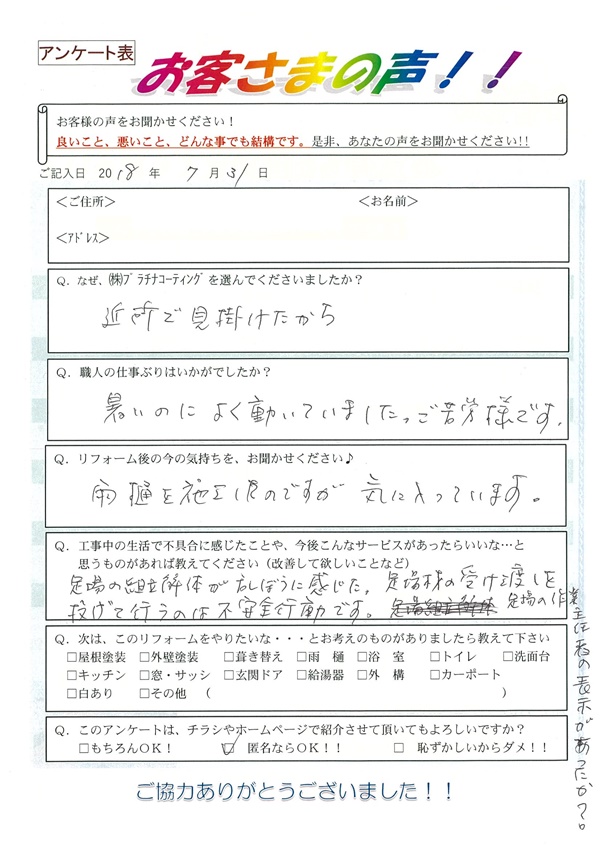 アンケート表
お客さまの声！！
お客様の声をお聞かせください！
良いこと、悪いこと、どんな事でも結構です。是非、あなたの声をお聞かせください!!
ご記入日 2018 年 7 月 31 日
＜ご住所＞ ＜お名前＞
＜ｱﾄﾞﾚｽ＞
Q．なぜ、㈱ﾌﾟﾗﾁﾅｺｰﾃｨﾝｸﾞを選んでくださいましたか？
近所で見掛けたから
Q．職人の仕事ぶりはいかがでしたか？
暑いのによく動いていました。ご苦労様です。
Q．リフォーム後の今の気持ちを、お聞かせください♪
雨樋を施工後のですが 気に入っています。
Q．工事中の生活で不具合に感じたことや、今後こんなサービスがあったらいいな…と
思うものがあれば教えてください（改善して欲しいことなど）
足場の組立解体がらんぼうに感じた。足場材の受け渡しを
投げて行うのは不安全行動です。足場の作業
主任者の表示があったか？。
Q．次は、このリフォームをやりたいな・・・とお考えのものがありましたら教えて下さい
□屋根塗装 □外壁塗装 □葺き替え □雨 樋 □浴 室 □トイレ □洗面台
□キッチン □窓・サッシ □玄関ドア □給湯器 □外 構 □カーポート
□白あり □その他 （ ）
Q．このアンケートは、チラシやホームページで紹介させて頂いてもよろしいですか？
□もちろんOK！ ☑ 匿名ならOK！！ □ 恥ずかしいからダメ！！
ご協力ありがとうございました！！